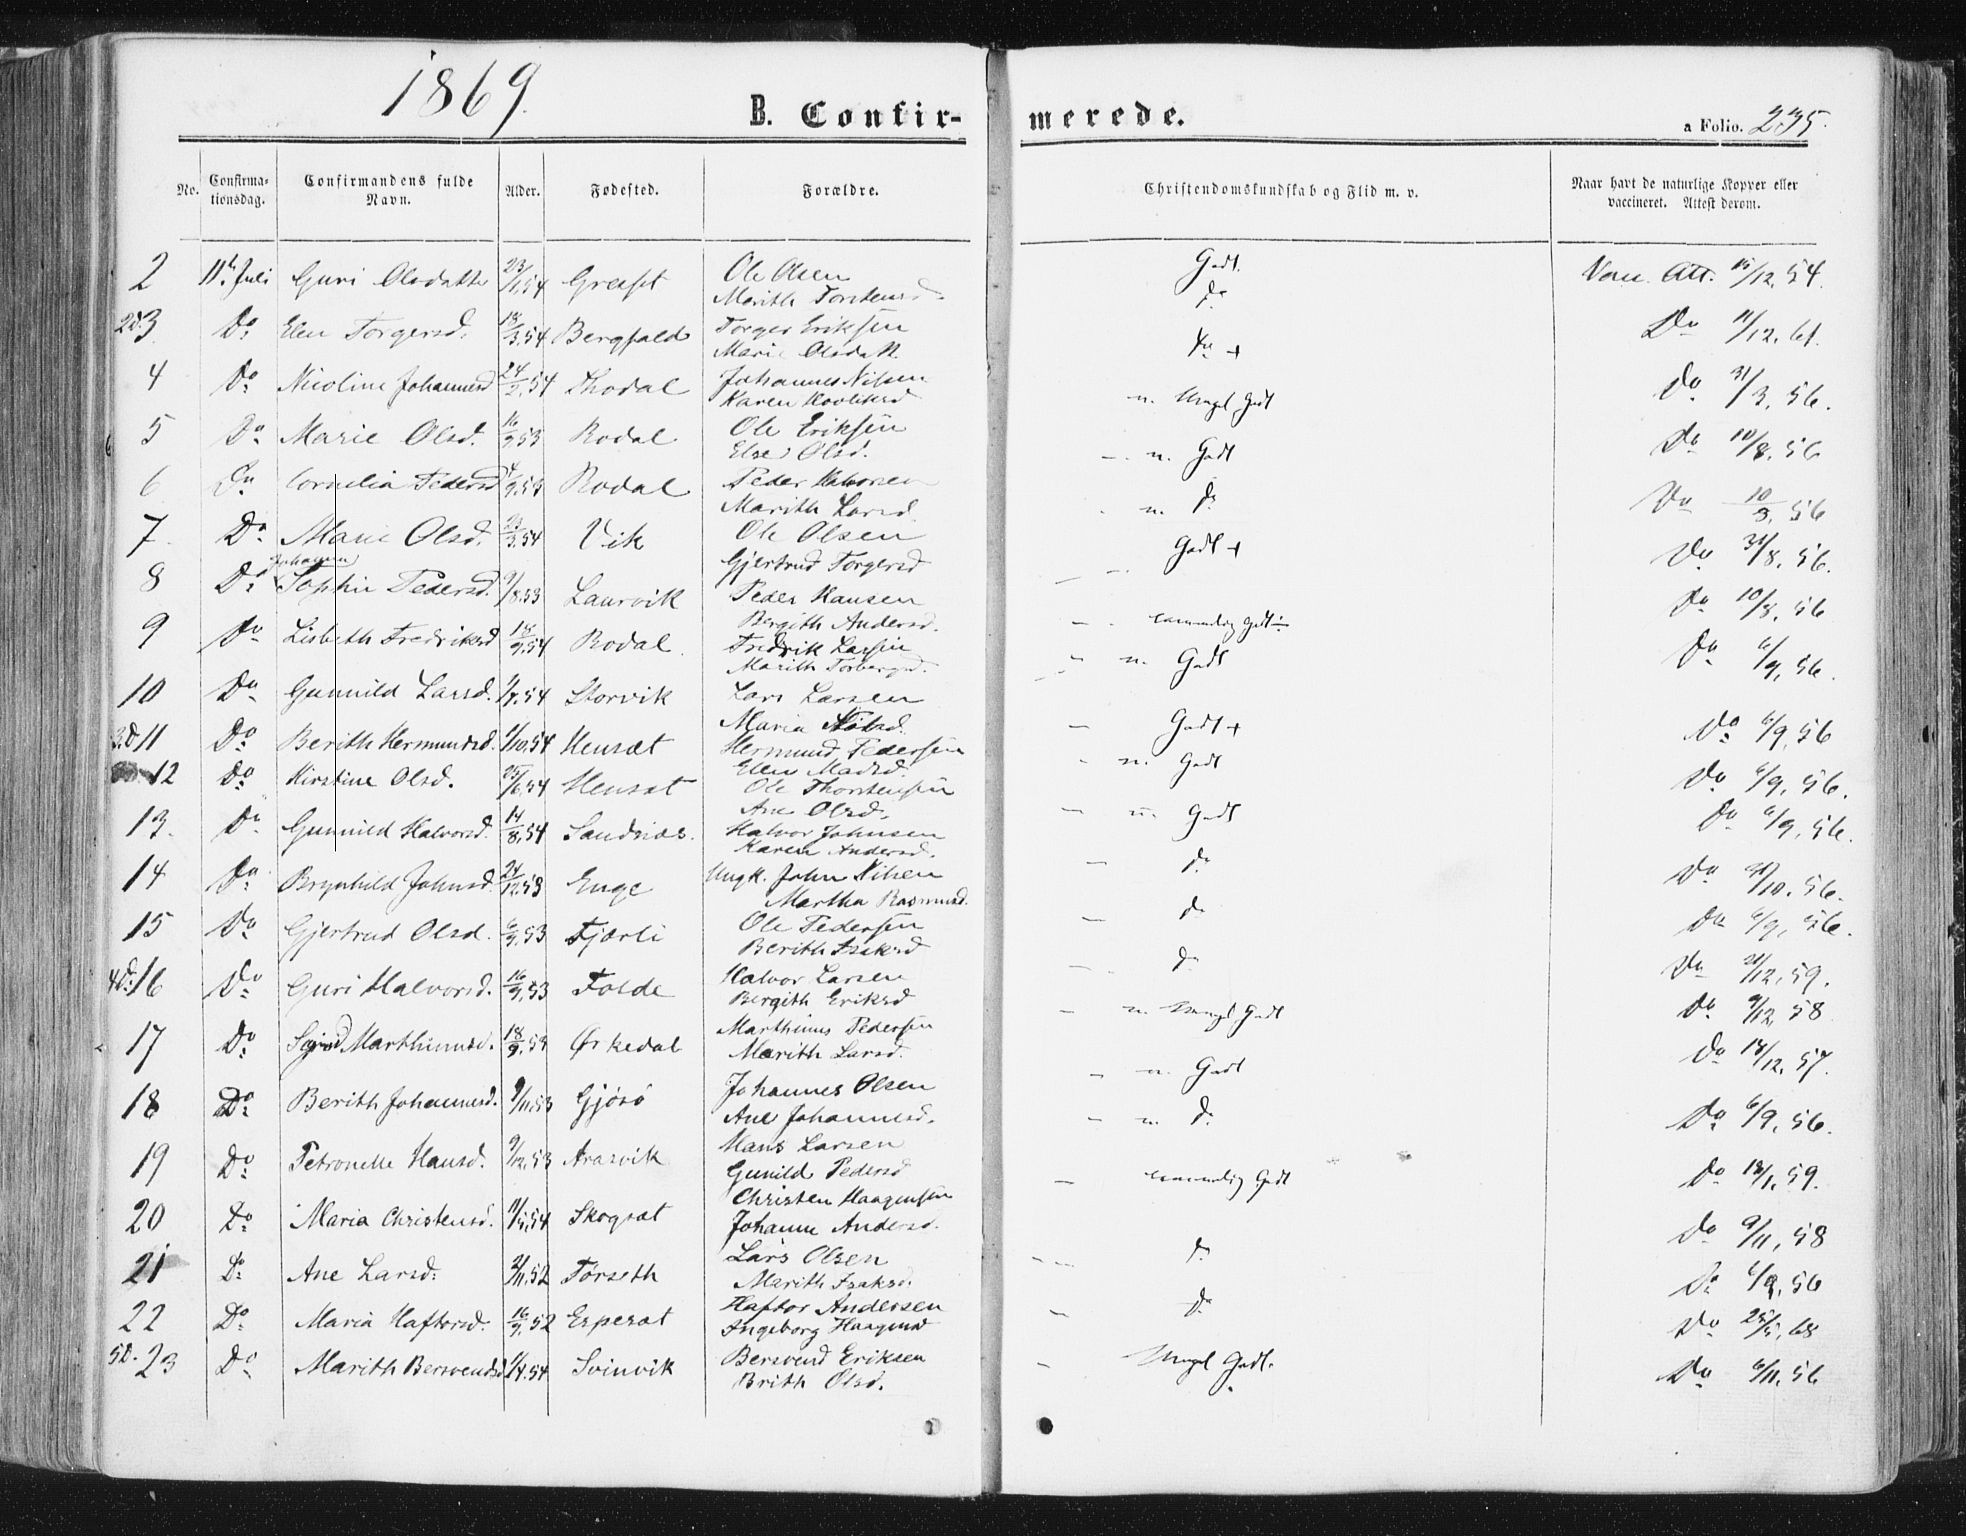 1869.
B. Confirmerede.
a Folio. 235.
No. Confirmationsdag. Confirmandens fulde Navn. Alder. Fødested. Forældre. Christendomskundskab og Flid m. v. Naar havt de naturlige Kopper eller vaccineret. Attest derom.
2 11te Juli Guri Olsdatter 23/1,54 Ole Olsen Godt. Vacc. Att. 15/12,54.
Marith Torstensd. do
3 Do Elen Torgersd. 18/3,54 Bergfald Torger Eriksen Do 11/12.61.
Marie Olsdatt. +
4 Do Nicoline Johannesd 24/2,54 Johannes Nilsen Do 31/3,56.
Karen
5 Do Marie Olsd. 16/9,53 Rodal Ole Eriksen Do 10/8.56
Else Olsd. Godt
6 Do Cornelia Pedersd 53 Rodal Peder Halvorsen Do 10/8,56
Marith Larsd. do
7 Do Marie Olsd. 23/3,54 Vik Ole Olsen Do 31/8,56.
Gjertrud Torgersd Godt +
8 Do Johanna Sophie Pedersd. 9/8.53 Laurvik Peder Hansen Do 10/8,56
Bergith Andersd. Godt
9 Do Lisbeth Fredriksd 18/9,54 Rodal Fredrik Larsen Godt Do 6/9,56.
Marith Torbergsd.
10 Do Gunnild Larsd. 54 Storvik Lars Larsen
Maria Godt + Do 6/9,56
3d. 11 Do Berith Hermundsd. 1/10.54 Hensæt Hermund Pedersen Godt
Elen Madsd. Do 6/9,56.
12 Do Kirstine Olsd. 25/6,54 Hensæt Ole Thorstensen
Ane Olsd. Godt Do 6/9,56.
13. Do Gunnild Halvorsd. 14/8,54 Sandnæs. Halvor Johnsen
Karen Andersd.
14 Do Brynhild Johnsd. 24/12,53 Enge Ungk. John Nilsen do Do /10.56.
Martha Rasmusd.
15 Do Gjertrud Olsd. 6/9,53 Fjærli Ole Pedersen do Do 6/9,56.
Berith Isaksd
4d. 16 Do Guri Halvorsd. 16/9,53 Folde Halvor Larsen do Do 21/12,59.
Bergith Eriksd Godt Do 9/12,58
17 Do Sigrid Marthinusd. 18/9,54 Ørkedal Marthinus Pedersen
Marith Larsd. Godt Do 18/12,57.
18 Do Berith Johannesd. 9/11.53 Gjøsø Johannes Olsen
Ane Johannesd. do Do 6/9,56.
19 Do Petronelle Hansd. 9/12,53 Arasvik Hans Larsen
Gunild Pedersd Godt Do 18/1,59.
20 Do Maria Christensd. 11/5,54 Skogsæt Christen Haagensen
Johanne Andersd. Do 9/11,58
21 Do Ane Larsd. 2/11,52 Torseth Lars Olsen do
Marith Isaksd. Do 6/9,56
22 Do Maria Haftorsd. 16/9,52 Espesæt Haftor Andersen do
Ingeborg Haagensd Do 25/5,68
5d. 23 Do Marith Bersvendsd 1/4.54 Svinvik Bersvend Eriksen Meget Godt. Do 6/11,56
Brith Olsd.